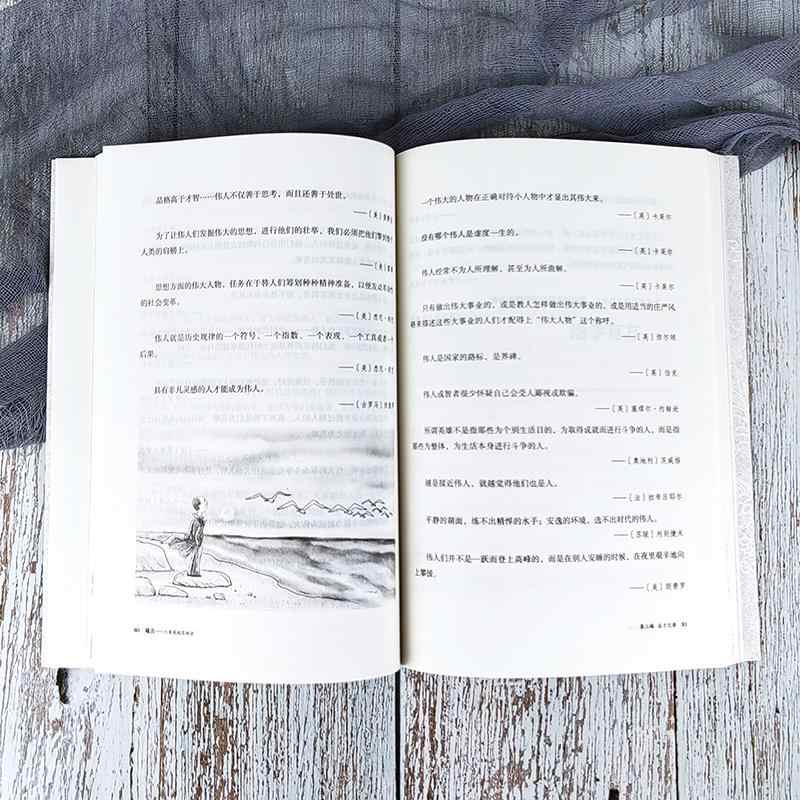 品格高于才智……伟人不仅善于思考，而且还善于处世。
——［美］
为了让伟人们发掘伟大的思想，进行他们的壮举，我们必须把他们
人类的肩膀上。
思想方面的伟大人物，任务在于替人们筹划种种精神准备，以便发动
的社会变革。
——［美］杰克·
伟人就是历史规律的一个符号、一个指数、一个表现、一个工具或者一
后果。
——［美］杰克·
具有非凡灵感的人才能成为伟人。
——［古罗马］
一个伟大的人物在正确对待小人物中才显出其伟大来。
——［英］卡莱尔
没有哪个伟人是虚度一生的。
——［英］卡莱尔
伟人经常不为人所理解，甚至为人所曲解。
——［英］卡莱尔
只有做出伟大事业的，或是教人怎样做出伟大事业的，或是用适当的庄严风
格来描述这些大事业的人们才配得上“伟大人物”这个称呼。
——［英］
伟人是国家的路标，是界碑。
——［英］伯克
伟人或智者很少怀疑自己会受人鄙视或欺骗。
——［英］塞缪尔·约翰逊
所谓英雄不是指那些为个别生活目的、为取得成就而进行斗争的人，而是指
那些为整体、为生活本身进行斗争的人。
——［奥地利］茨威格
越是接近伟人，就越觉得他们也是人。
——［法］拉布吕耶尔
平静的湖面，练不出精悍的水手；安逸的环境，造不出时代的伟人。
——［苏联］列别捷夫
伟人们并不是一跃而登上高峰的，而是在别人安睡的时候，在夜里艰辛地向
上攀援。
——［英］朗费罗